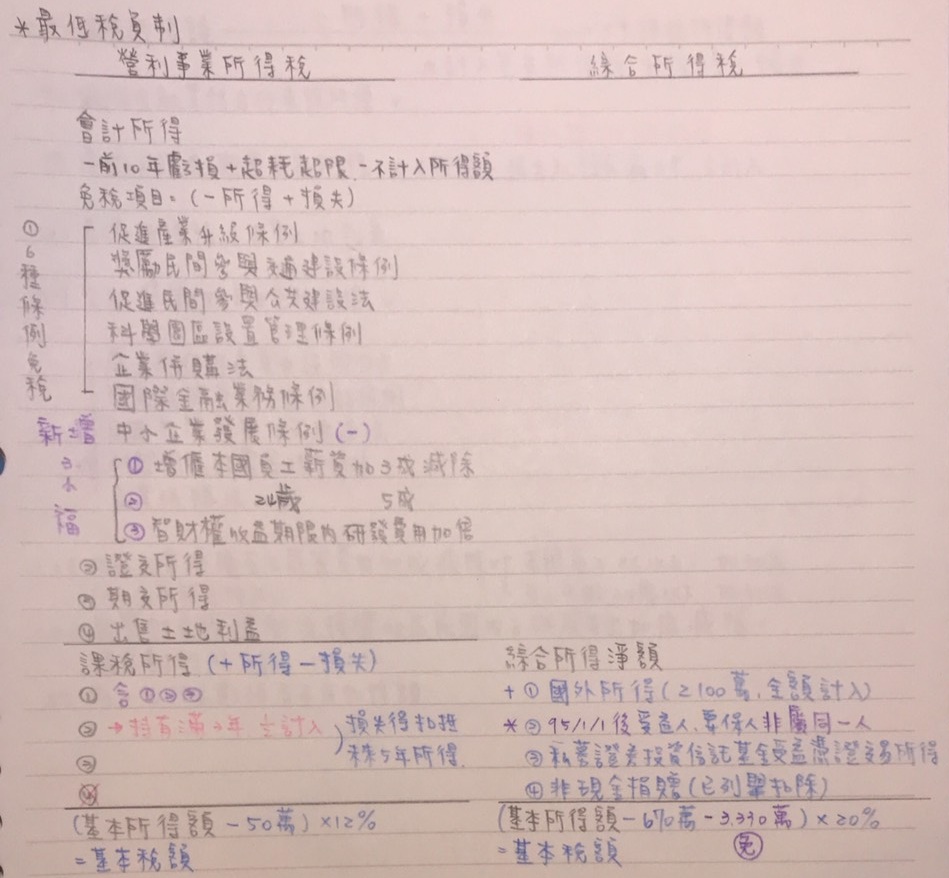 *最低稅負制
營利事業所得稅
綜合所得稅
會計所得
-前10年虧損+超耗超限-不計入所得額
免稅項目:(-所得+損失)
① 6種條例免稅
促進產業升級條例
獎勵民間參與交通建設條例
促進民間參與公共建設法
科學園區設置管理條例
企業併購法
國際金融業務條例
新增 中小企業發展條例(-)
3小福
①增僱本國員工薪資加3成減除
② 24歲 5成
③智財權收益期限內研發費用加倍
②證交所得
③期交所得
④出售土地利益
課稅所得(+所得-損失)
① 含①②③
②→持有滿3年 主計入
③
④
損失得扣抵
來5年所得
(基本所得額-50萬)×12%
=基本稅額
綜合所得淨額
+①國外所得(≥100萬,全額計入)
*②95/1/1後受益人、要保人非屬同一人
③私募證券投資信託基金受益憑證交易所得
④非現金捐贈(已列舉扣除)
(基本所得額-670萬-3,330萬)×20%
=基本稅額
免